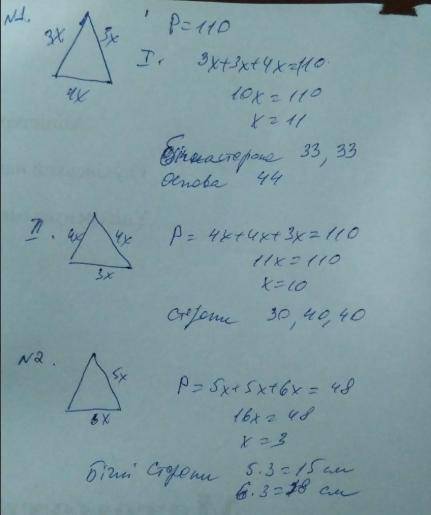 №1.
3x 3x P=110
4x
I. 3x+3x+4x=110
10x=110
x=11
Бічна сторона 33, 33
Основа 44
II. 4x 4x P=4x+4x+3x=110
3x 11x=110
x=10
Сторони 30, 40, 40
№2.
5x P=5x+5x+6x=48
6x 16x=48
x=3
Бічні сторони 5·3=15 см
6·3=18 см